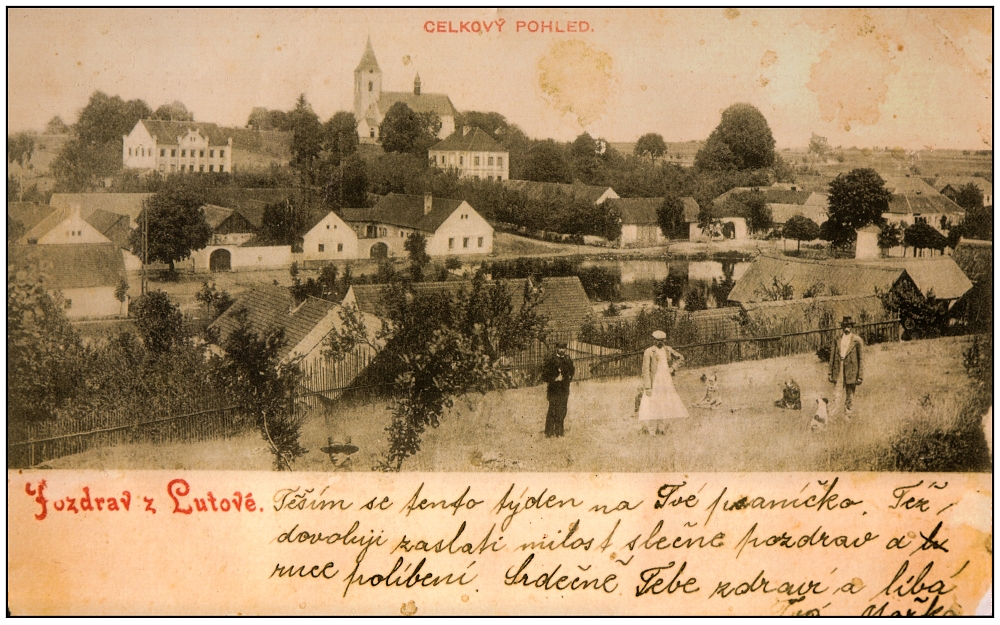 CELKOVÝ POHLED.
Pozdrav z Lutové. Těším se tento týden na Tvé psaníčko. Též
dovoluji zaslati milost slečně pozdrav a
ruce políbení. Srdečně Tebe zdraví a líbá
Tvá